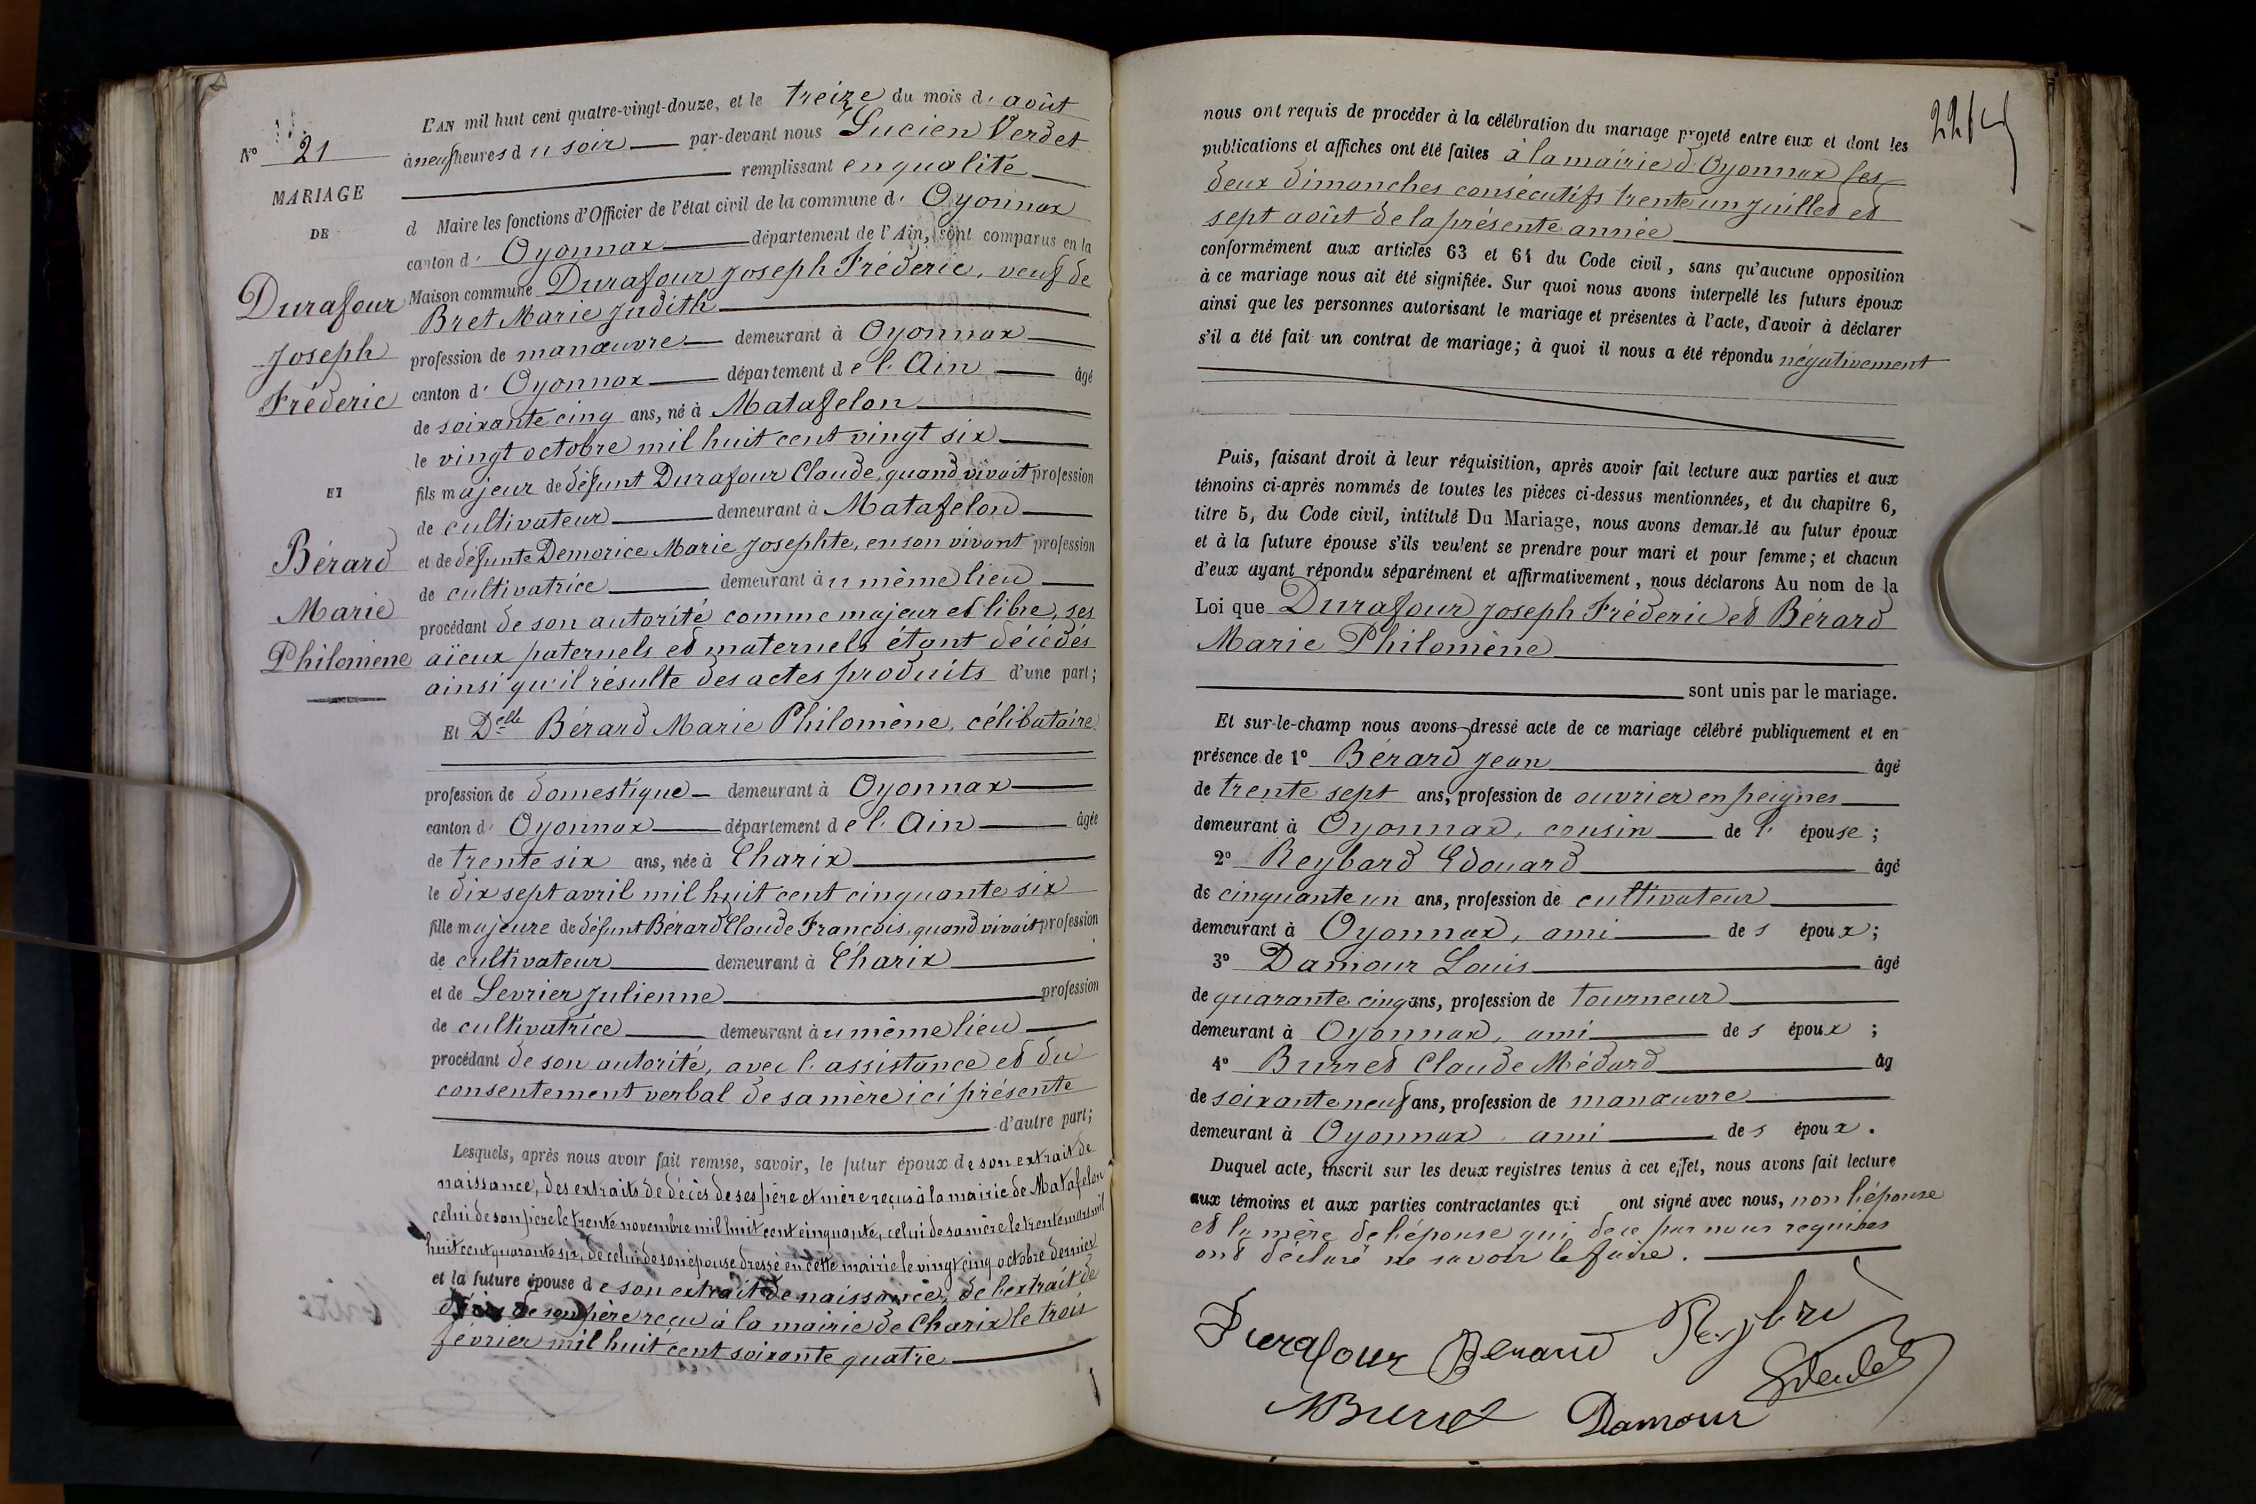 N° 21
MARIAGE
DE
Durafour
Joseph
Fréderic
ET
Bérard
Marie
Philomène
L'AN mil huit cent quatre-vingt-douze, et le treize du mois d'août
à neuf heures du soir par-devant nous Lucien Verdet
remplissant en qualité
d Maire les fonctions d'Officier de l'état civil de la commune d'Oyonnax
canton d'Oyonnax département de l'Ain, sont comparus en la
Maison commune Durafour Joseph Fréderic, veuf de
Bret Marie Judith
profession de manœuvre demeurant à Oyonnax
canton d'Oyonnax département de l'Ain âgé
de soixante cinq ans, né à Matafelon
le vingt octobre mil huit cent vingt six
fils majeur de défunt Durafour Claude, quand vivait profession
de cultivateur demeurant à Matafelon
et de défunte Demorice Marie Josephte, en son vivant profession
de cultivatrice demeurant au même lieu
procédant de son autorité comme majeur et libre, ses
aïeux paternels et maternels étant décédés
ainsi qu'il résulte des actes produits d'une part;
Et Delle Bérard Marie Philomène, célibataire
profession de domestique demeurant à Oyonnax
canton d'Oyonnax département de l'Ain âgée
de trente six ans, née à Charix
le dix sept avril mil huit cent cinquante six
fille majeure de défunt Bérard Claude François, quand vivait profession
de cultivateur demeurant à Charix
et de Levrier Julienne profession
de cultivatrice demeurant au même lieu
procédant de son autorité, avec l'assistance et du
consentement verbal de sa mère ici présente
d'autre part;
Lesquels, après nous avoir fait remise, savoir, le futur époux de son extrait de
naissance, des extraits de décès de ses père et mère reçus à la mairie de Matafelon
celui de son père le trente novembre mil huit cent cinquante, celui de sa mère le trente mars mil
huit cent quarante six, de celui de son épouse dressé en cette mairie le vingt cinq octobre dernier
et la future épouse de son extrait de naissance, de l'extrait de
décès de son père reçu à la mairie de Charix le trois
février mil huit cent soixante quatre
nous ont requis de procéder à la célébration du mariage projeté entre eux et dont les
publications et affiches ont été faites à la mairie d'Oyonnax les
deux dimanches consécutifs trente un juillet et
sept août de la présente année
conformément aux articles 63 et 64 du Code civil, sans qu'aucune opposition
à ce mariage nous ait été signifiée. Sur quoi nous avons interpellé les futurs époux
ainsi que les personnes autorisant le mariage et présentes à l'acte, d'avoir à déclarer
s'il a été fait un contrat de mariage; à quoi il nous a été répondu négativement
Puis, faisant droit à leur réquisition, après avoir fait lecture aux parties et aux
témoins ci-après nommés de toutes les pièces ci-dessus mentionnées, et du chapitre 6,
titre 5, du Code civil, intitulé Du Mariage, nous avons demandé au futur époux
et à la future épouse s'ils veulent se prendre pour mari et pour femme; et chacun
d'eux ayant répondu séparément et affirmativement, nous déclarons Au nom de la
Loi que Durafour Joseph Fréderic et Bérard
Marie Philomène
sont unis par le mariage.
Et sur-le-champ nous avons dressé acte de ce mariage célébré publiquement et en
présence de 1° Bérard Jean âgé
de trente sept ans, profession de ouvrier en peignes
demeurant à Oyonnax, cousin de l'épouse;
2° Reybard Edouard âgé
de cinquante un ans, profession de cultivateur
demeurant à Oyonnax, ami des époux;
3° Damour Louis âgé
de quarante cinq ans, profession de tourneur
demeurant à Oyonnax, ami des époux;
4° Burret Claude Médard âg
de soixante neuf ans, profession de manœuvre
demeurant à Oyonnax ami des époux.
Duquel acte, inscrit sur les deux registres tenus à cet effet, nous avons fait lecture
aux témoins et aux parties contractantes qui ont signé avec nous, non l'épouse
et la mère de l'épouse qui de ce par nous requises
ont déclaré ne savoir le faire.
Durafour Berard
Burret Damour